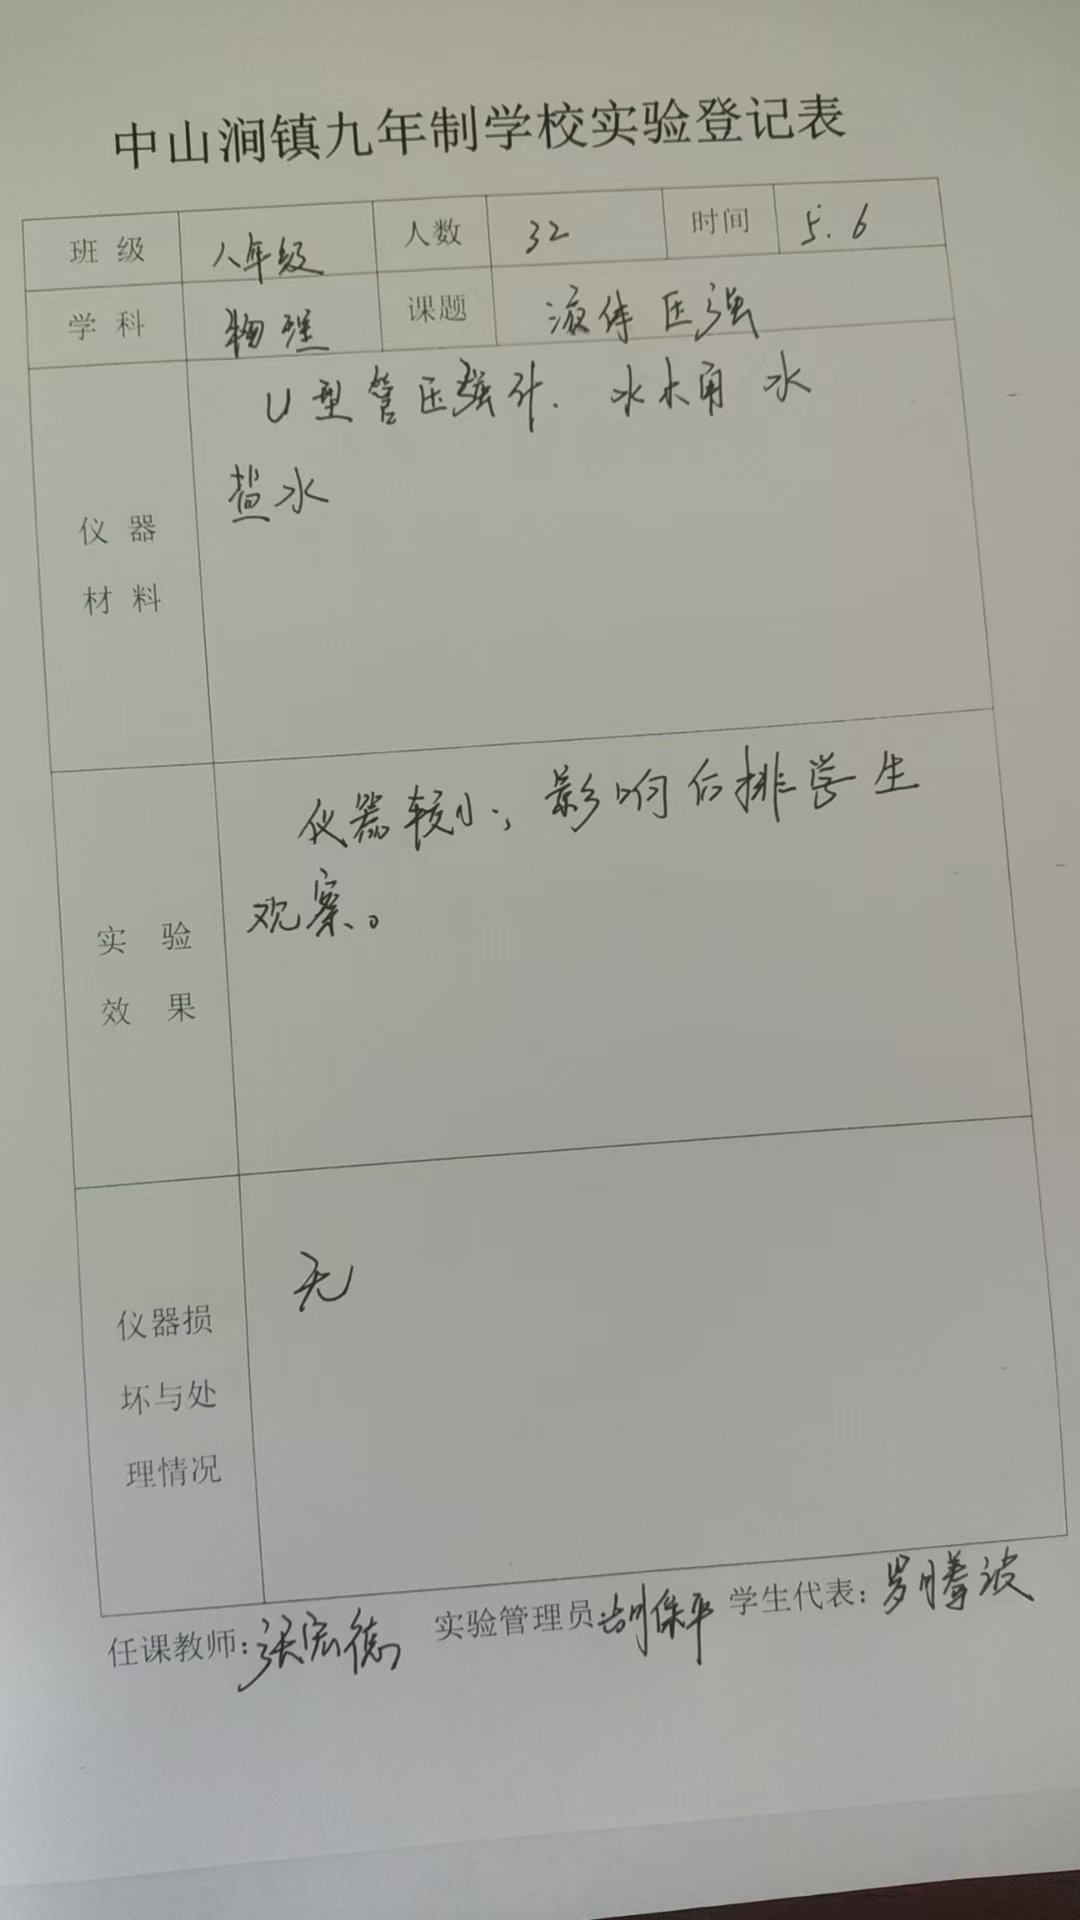 中山涧镇九年制学校实验登记表
班级 八年级 人数 32 时间 5.6
学科 物理 课题 液体压强
仪器
材料
U型管压强计. 水 水 
盐水
实验
效果
仪器较小, 影响后排学生
观察。
仪器损
坏与处
理情况
无
任课教师: 梁宏德 实验管理员: 胡保平 学生代表: 罗腾波